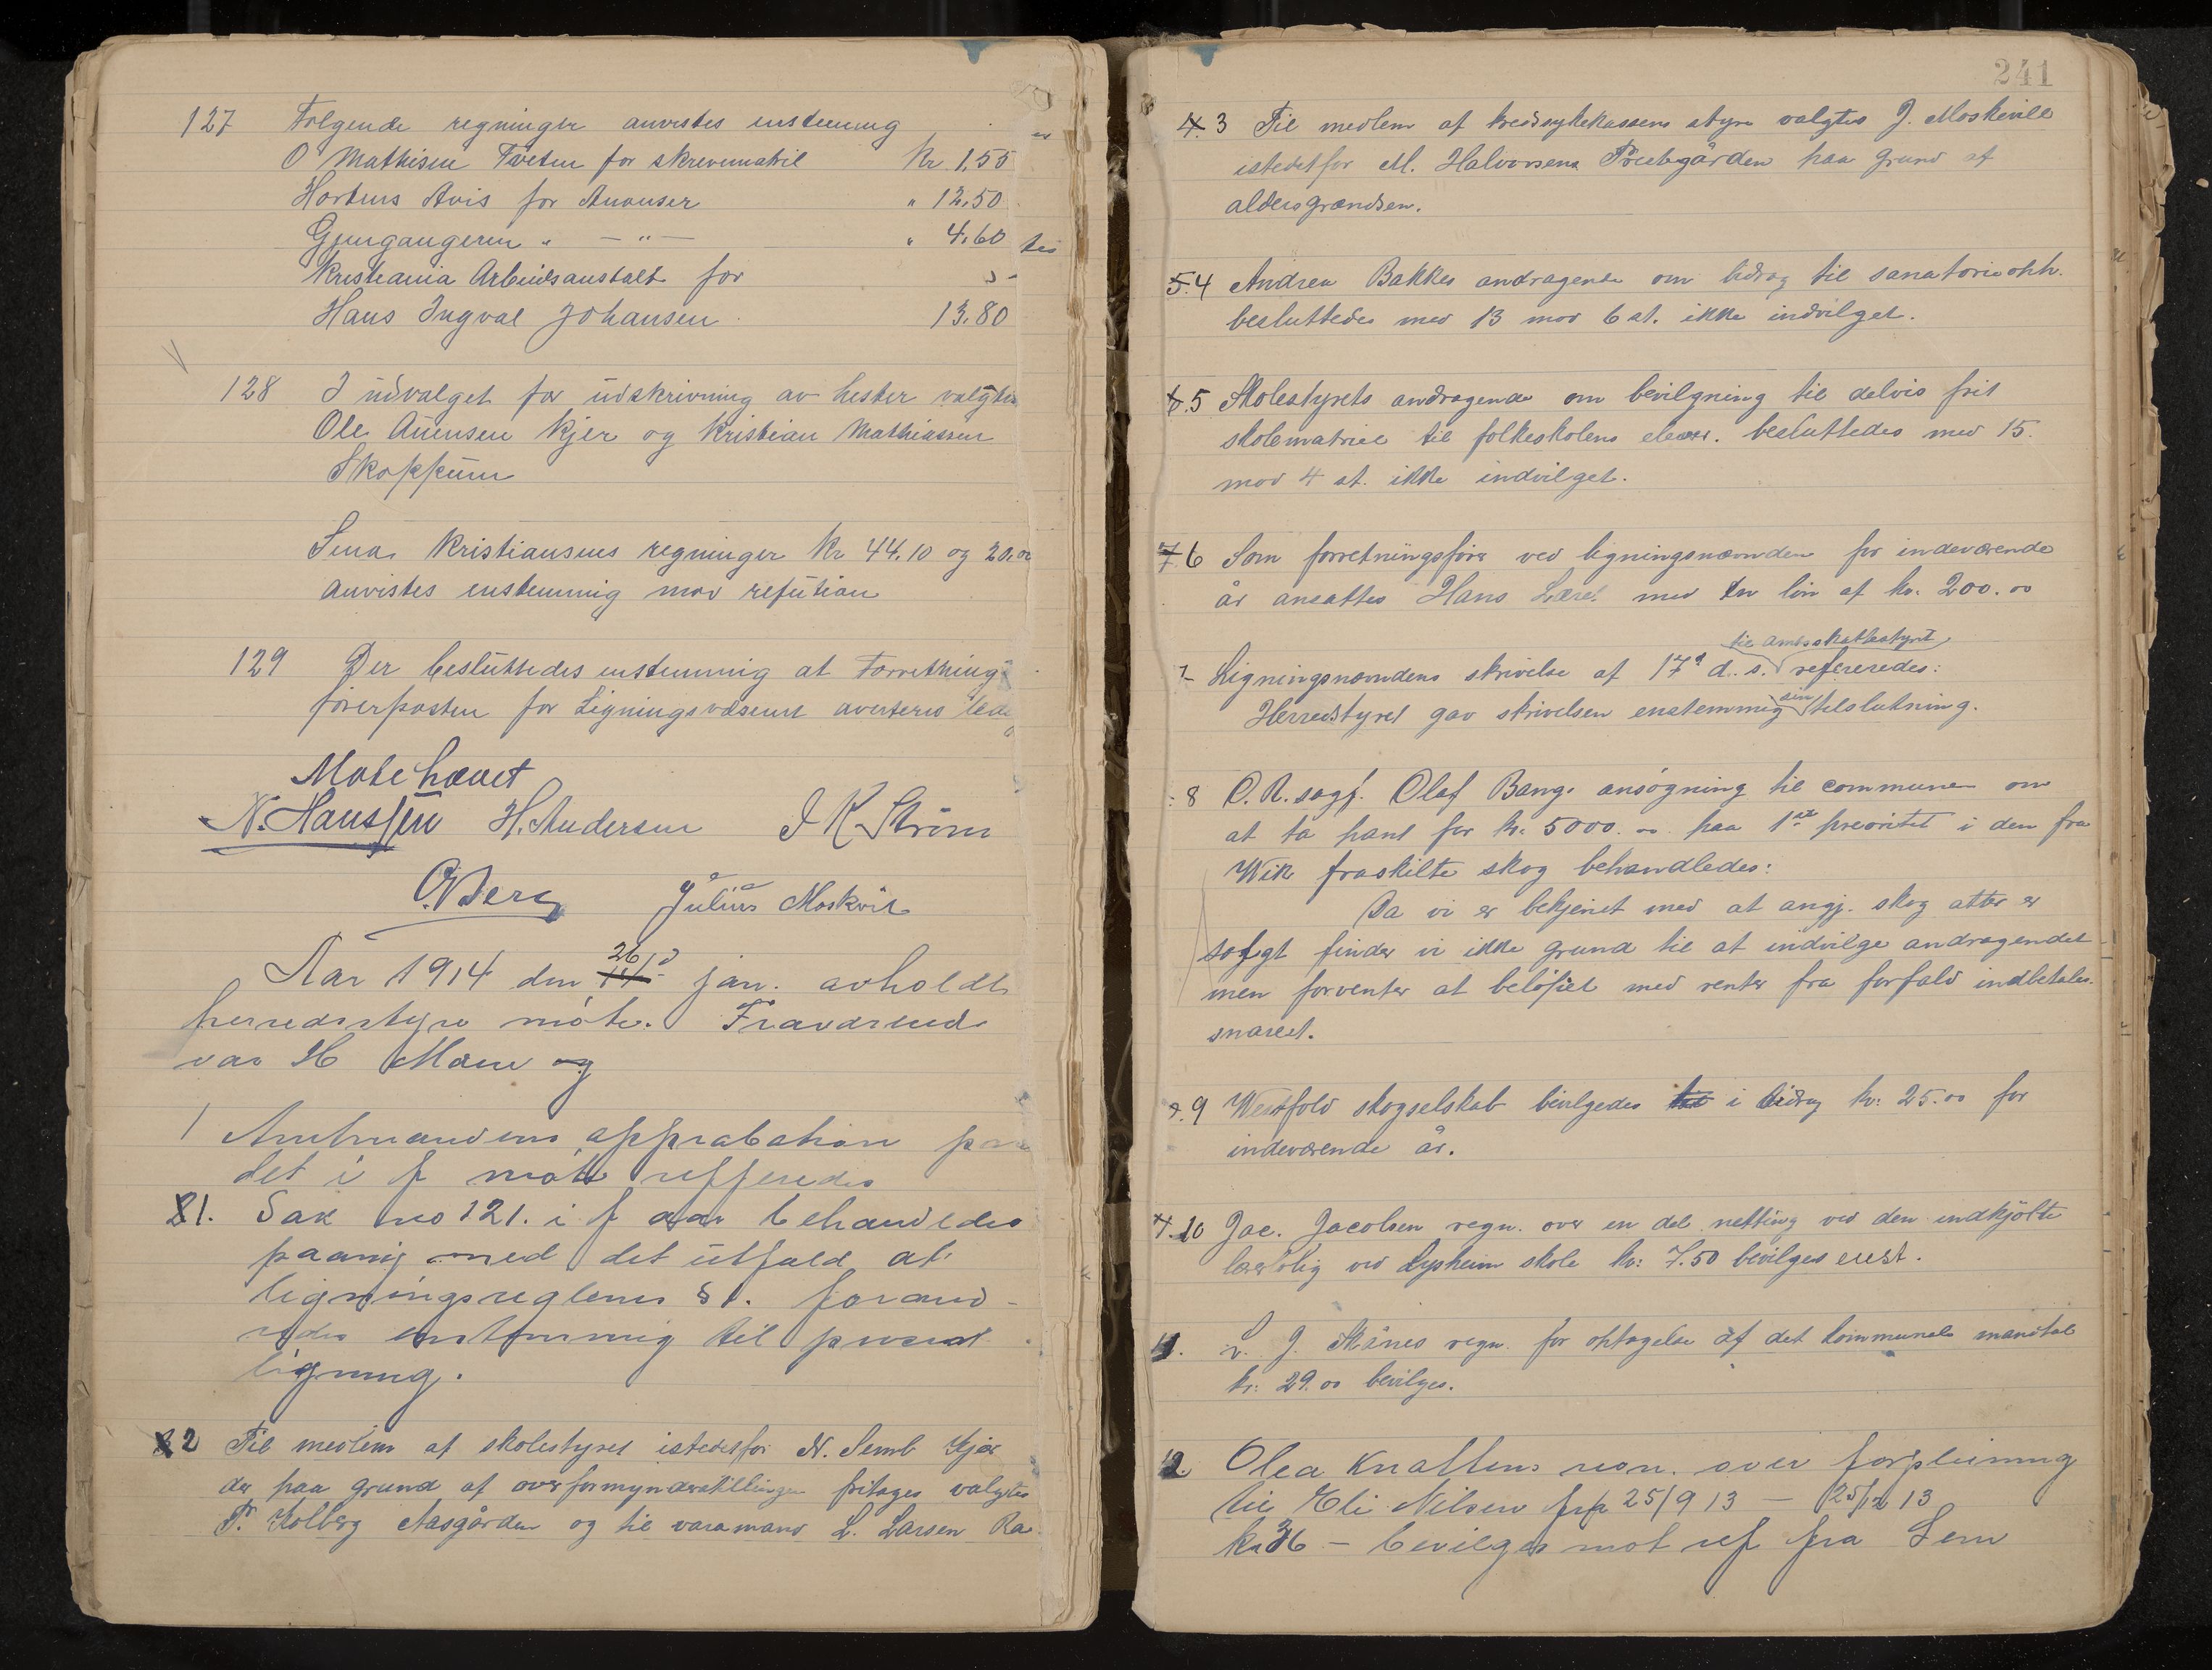 127 Følgende regninger anvistes enstemmig
O Mathisen Tveten for skrivematril Kr. 1,55
Hortens Avis for Anonser " 12,50
Gjengangeren " — " — " 4,60
Kristiania Arbeidsanstalt for
Hans Ingval Johansen 13,80
128 I udvalget for udskrivning av hester valgtes
Ole Auensen Kjer og Kristian Mathiassen
Skoppum
Sina Kristiansens regninger Kr 44,10 og 20,00
anvistes enstemmig mov refution
129 Der besluttedes enstemmig at Forretnings
förerposten for Ligningsvæsenet averteres ledig
Møte hævet
N. Hanssen H. Andersen I K Strøm
O. Berg Julius Moskvil
Aar 1914 den 26/ jan. avholdt
herredsstyre möte. Fraværende
var H Maru og
1 Amtmandens approbation paa
det i f möte refferedes
1. Sak no 121. i f aar behandledes
paany med det utfald at
ligningsreglenes § 1. forand-
redes enstemmig til procent
ligning.
2 Til medlem af skolestyret istedetfor N. Semb Kjær
der paa grund af overformynderstillingen fritages valgtes
P. Kolberg Aasgården og til varamand L. Larsen Ra
241
4. 3 Til medlem af kredssykekassens styre valgtes J. Moskvill
istedetfor M. Halvorsena Prestegården paa grund af
aldersgrændsen.
5. 4 Andrea Bakkes andragende om bidrag til sanatorieoph.
besluttedes med 13 mod 6 st. ikke indvilget.
6. 5 Skolestyrets andragende om bevilgning til delvis frit
skolematriel til folkeskolens elever. besluttedes med 15.
mod 4 st. ikke indvilget.
7 6 Som forretningsförer ved ligningsnævnden for indeværende
år ansattes Hans med en lön af kr. 200.00
til amtsskattestyret
7 Ligningsnævndens skrivelse af 17d d. s. refereredes:
Herredstyret gav skrivelsen enstemmig sin tilslutning.
8 O. R. sagf. Olaf Bangs ansögning til communen om
at ta pant for kr. 5000.00 paa 1ste preoritet i den fra
Wik fraskilte skog behandledes:
Da vi er bekjent med at angj. skog atter er
solgt finder vi ikke grund til at indvilge andragendet
men forventer at belöpet med renter fra forfald indbetales
snarest.
9 Westfold skogselskab bevilgedes i bidrag kr: 25.00 for
indeværende år.
10 Jac. Jacobsen regn. over en del netting ved den indkjöbte
lærerbolig ved Lysheim skole kr: 7.50 bevilges enst.
11. L. J. Skånes regn. for optagelse af det kommunale mandtal
kr: 29.00 bevilges.
12. Olea Knattens regn. over forpleining
til Eli Nilsen fra 25/9 13 — 25/12 13
kr 36 — bevilges mot ref fra Sem